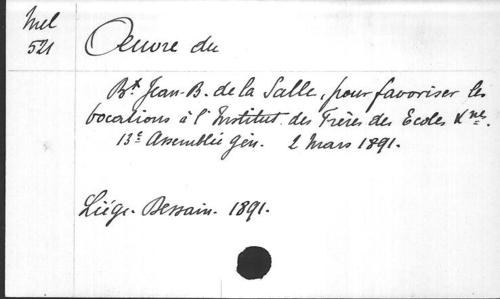 Mel
521
Oeuvre du
Bx Jean-B. de la Salle, pour favoriser les
vocations à l'Institut des Frères des Ecoles Xnes.
13e Assemblée gén. 2 Mars 1891.
Liége. Dessain. 1891.